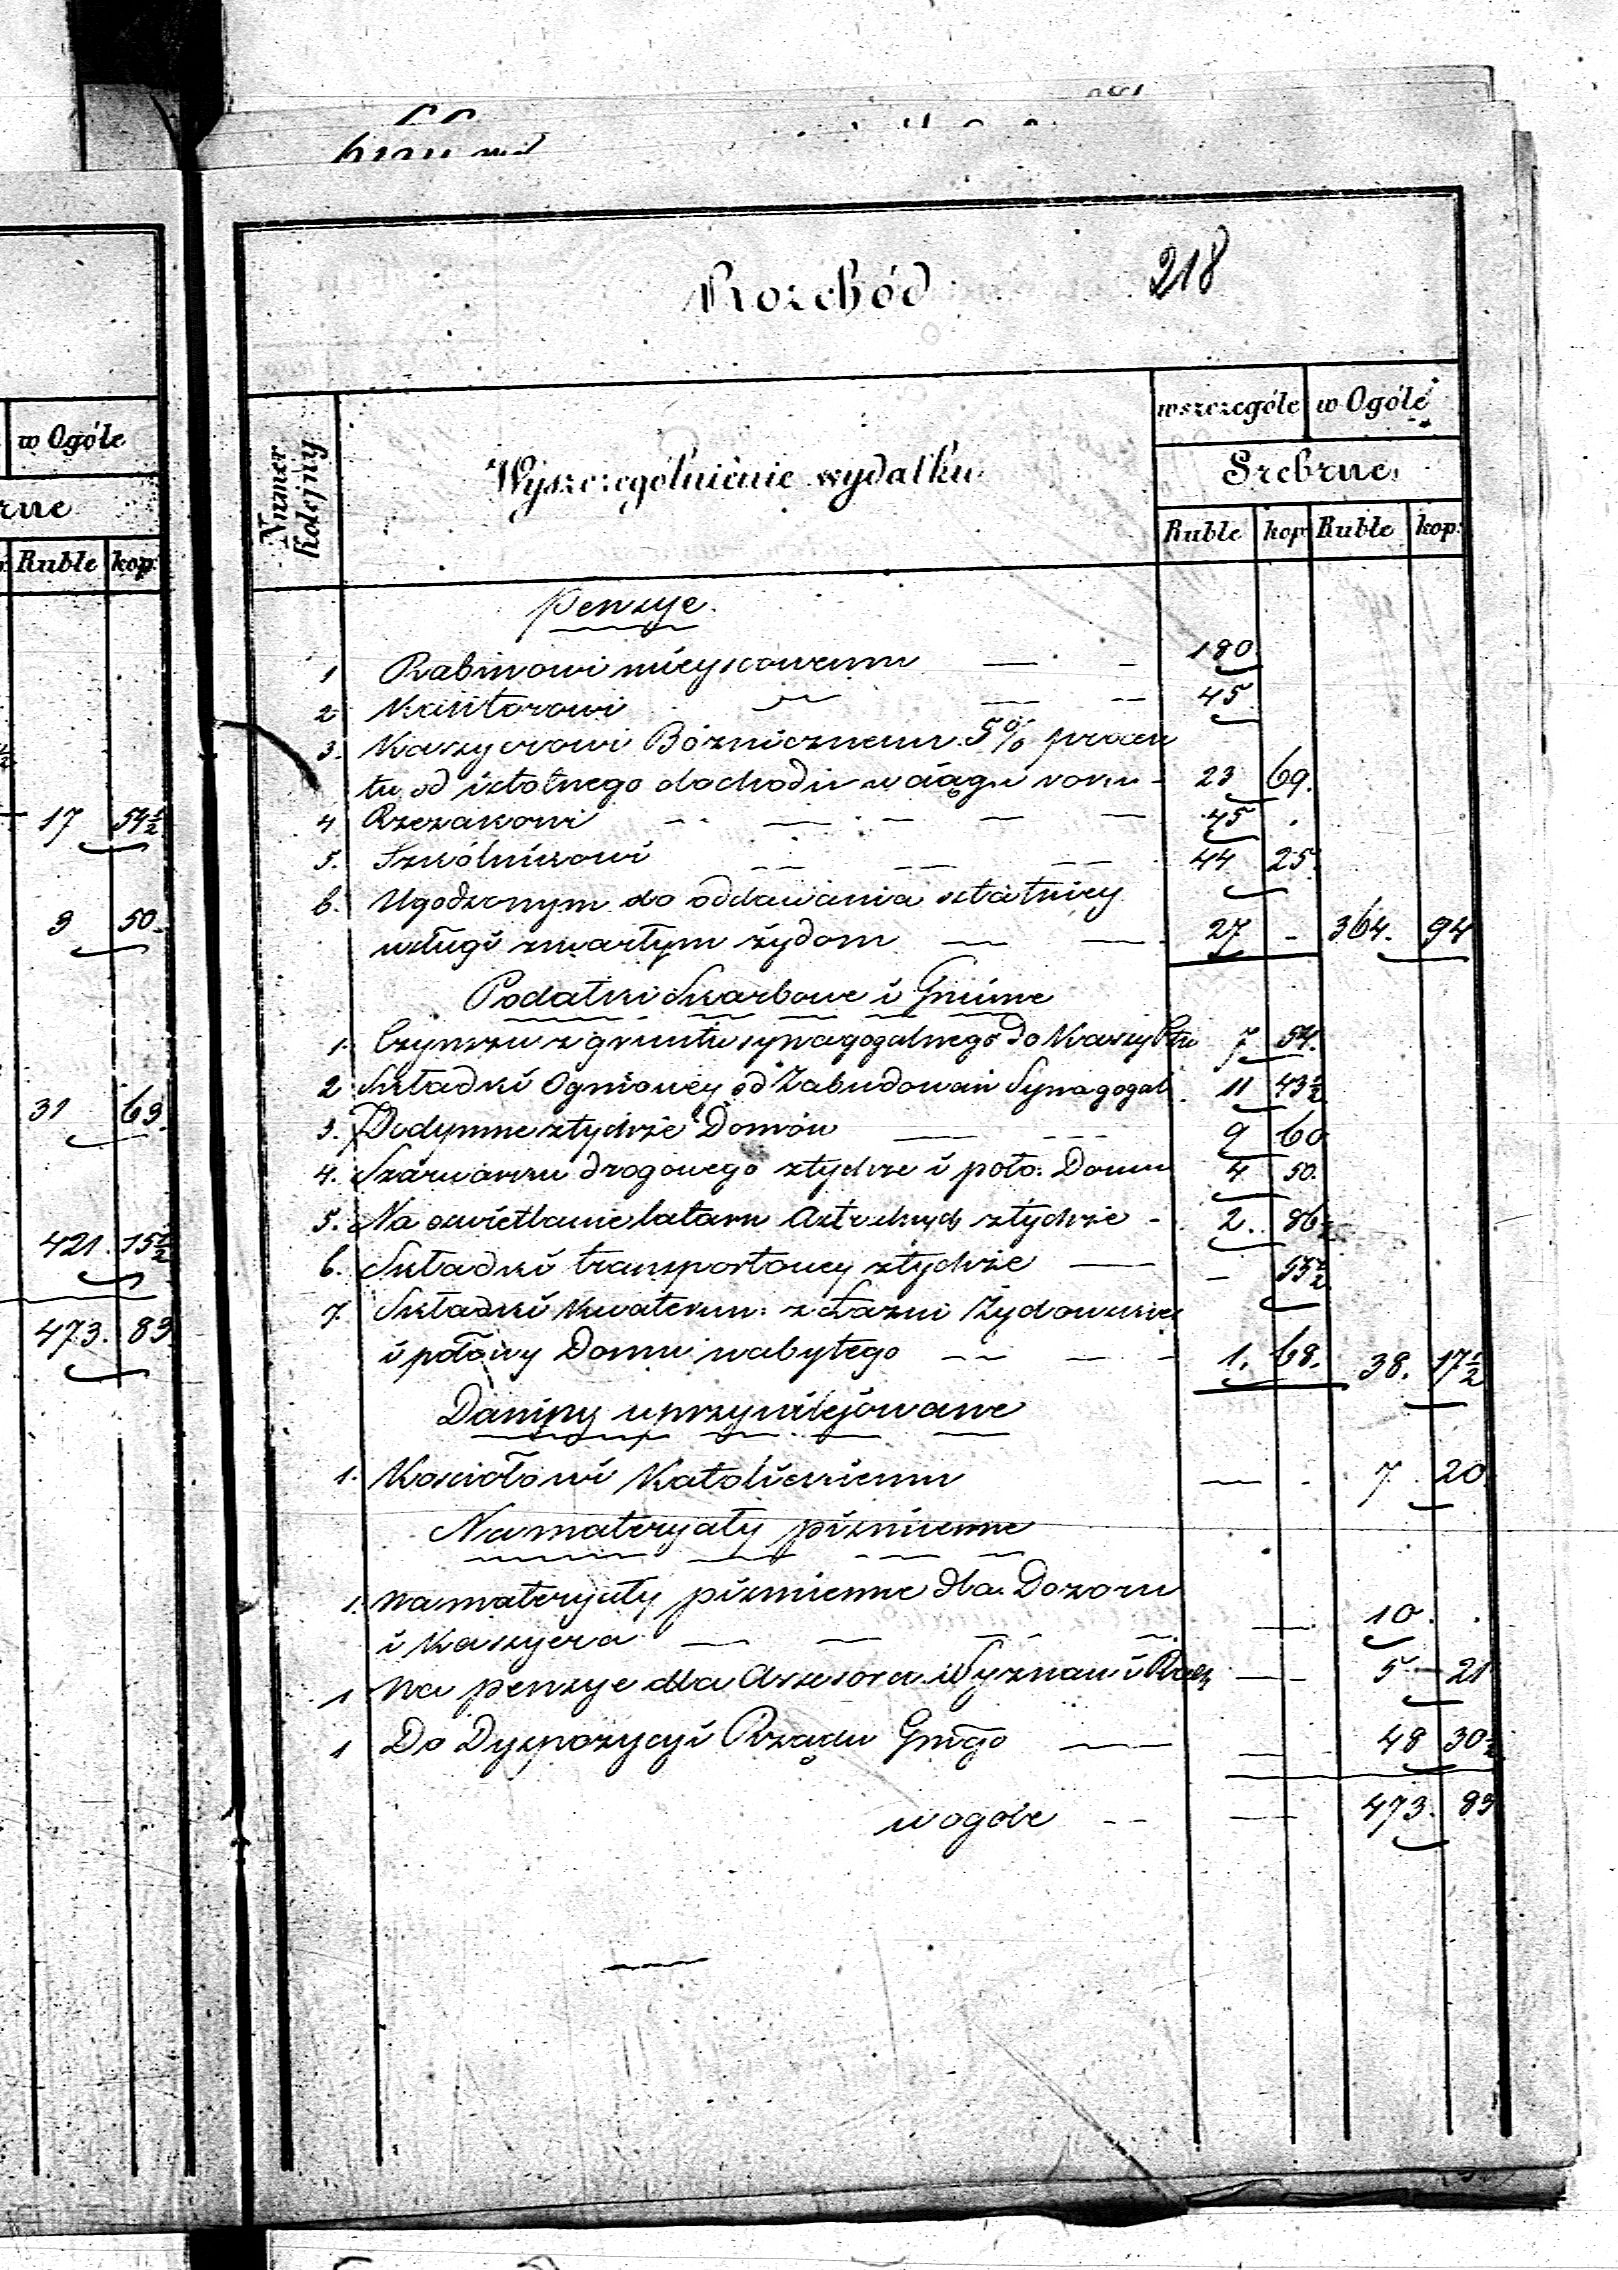 w Ogóle
Ruble kop:
17 54½
9 50.
31 69.
421. 15½
473. 83
Rozchód 218
Numer kolejny
Wyszczególnienie wydatku
wszczególe w Ogóle
Srebrne
Ruble kop Ruble kop:
Penzye.
1 Rabinowi mieyscowemu — — 180
2 Kantorowi — — — 45
3. Kaszyerowi Bóżnicznemu 5% procen
tu od istotnego dochodu w ciągu roku - 23 69.
4 Rzezakowi — — — — 45 .
5. Szkólnikowi — — — 44 25.
6. Ugodzonym do oddawania ostatniey
usługi zmarłym żydom — — 27 - 364. 94
Podatki Skarbowe i Gminne
1. Czynszu z gruntu synagogalnego do Kaszy 7 54.
2 Składki Ogniowey od Zabudowań Synagogal. 11 43½
3. Podymne ztychże Domów — — 9 60
4. Szarwarku drogowego ztychże i poło. Domu 4 50.
5. Na oswietlanie latarn ztychże - 2. 86½
6. Składki transportowey ztychże — - 55½
7. Składki Kwaterun: z Łazni Żydowskiey
i połowy Domu nabytego — — - 1. 68. 38. 17½
Daniny uprzywilejowane
1. Kosciołowi Katolickiemu — - 7. 20
Na materyały piśmienne
1. Na materyały piśmienne dla Dozoru
i Kaszyera — — — — — 10. .
1 Na penzye dla Assesora Wyznań i — - 5 21
1 Do Dyspozycyi Rządu Gmgo — — - 48 30½
w ogóle — — 473. 83